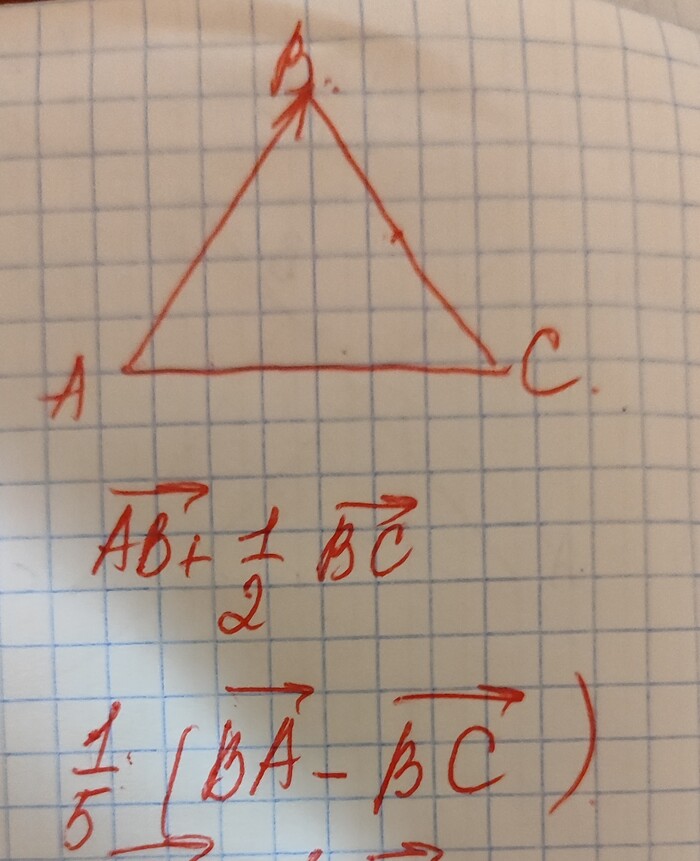 B
A
C.
AB + 1/2 BC
1/5 (BA - BC)